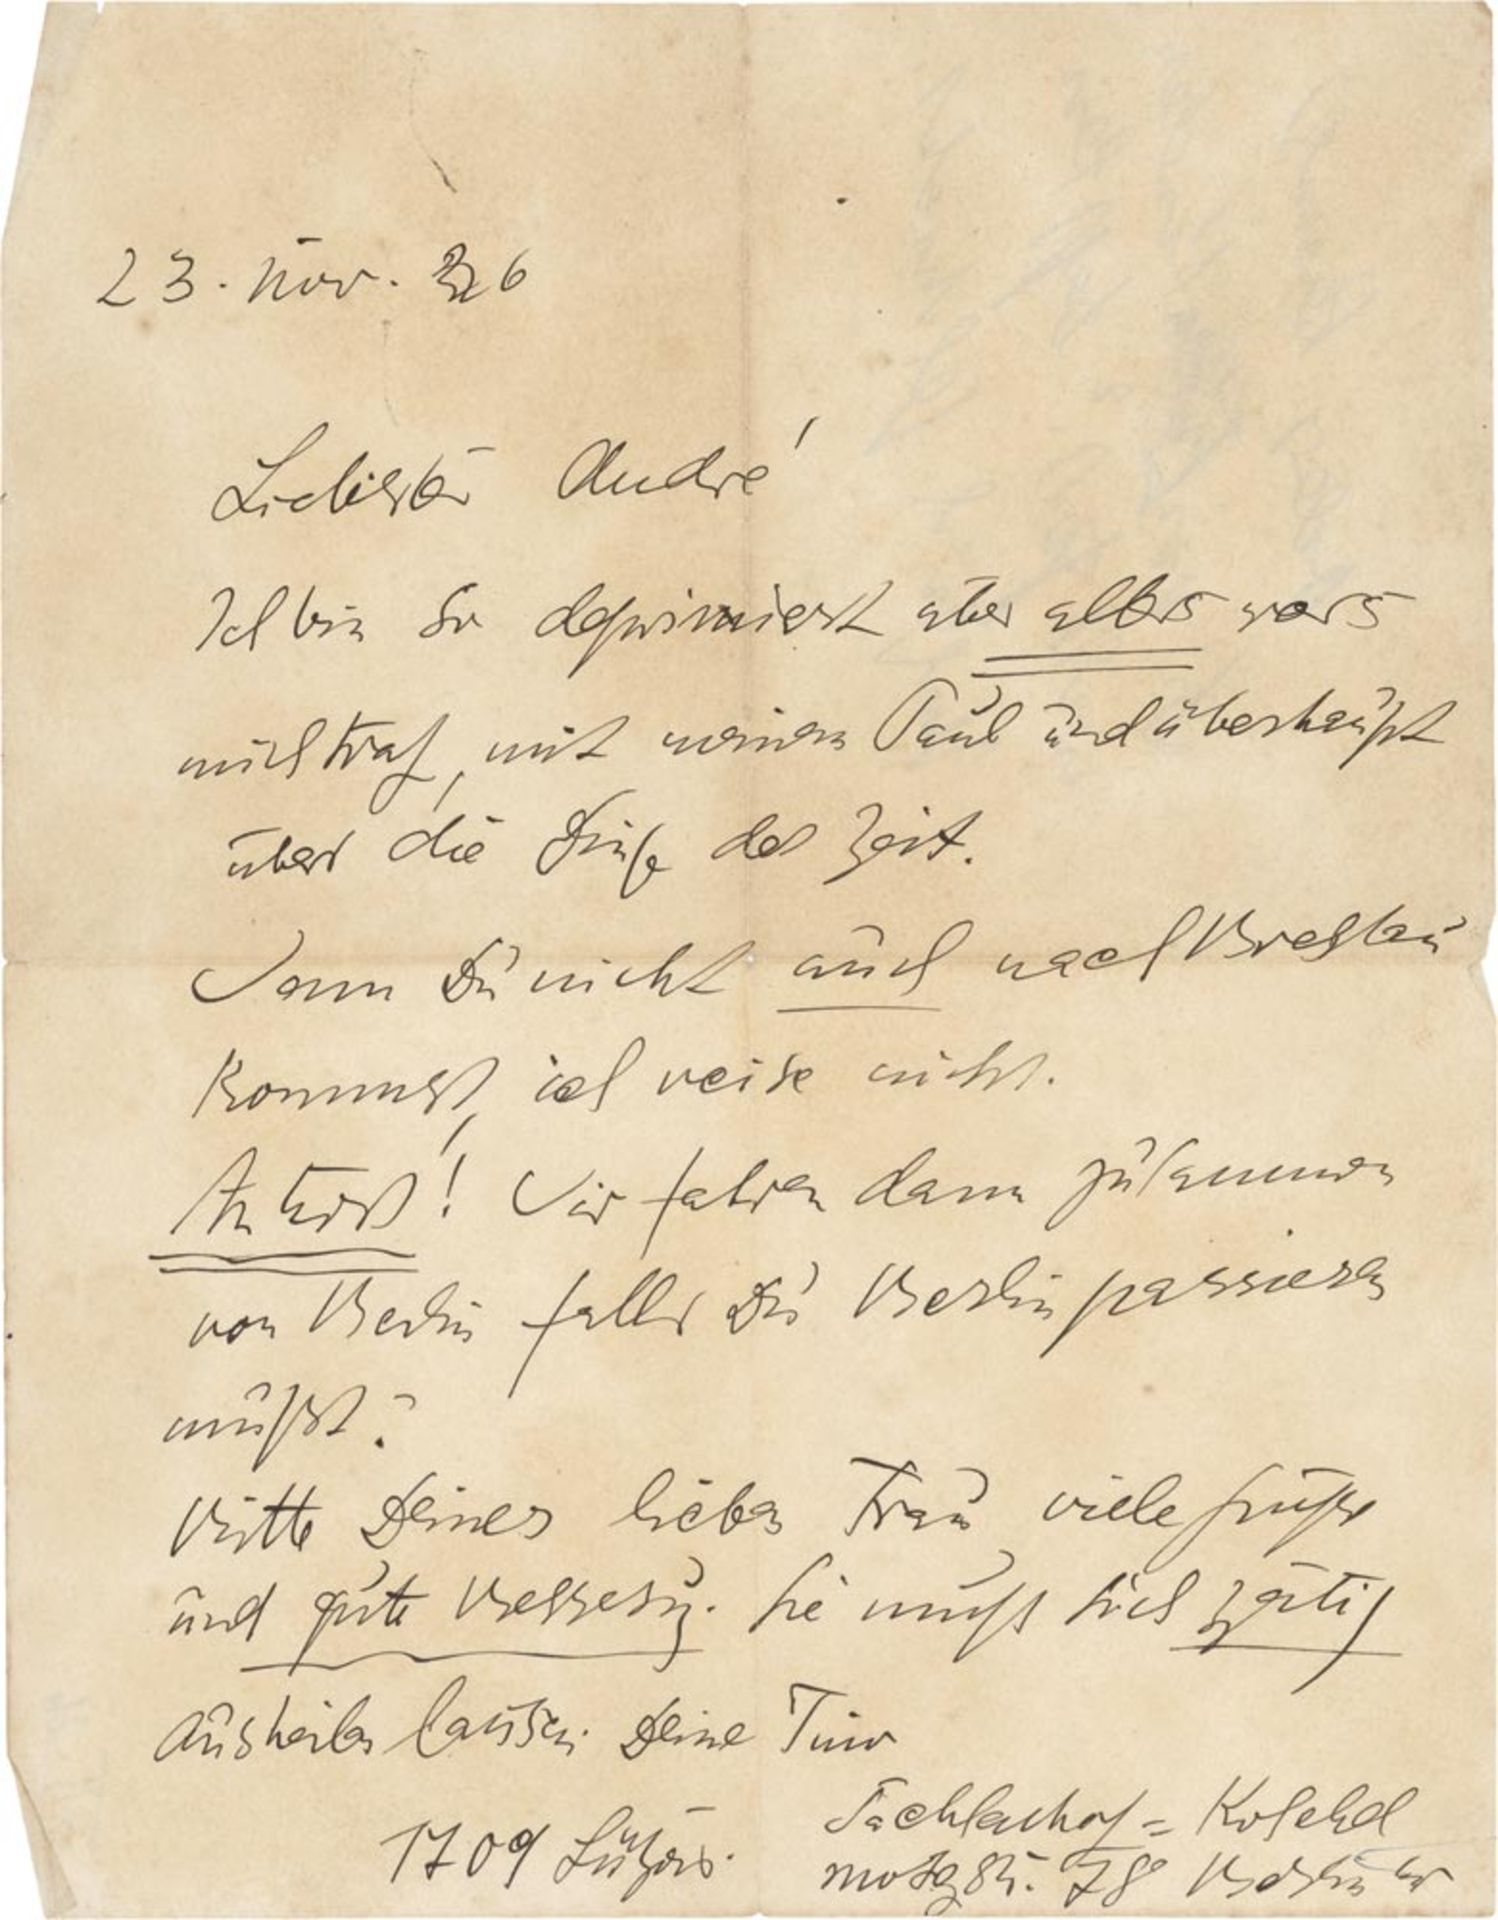 23. Nov. 26
Liebster André
Ich bin so deprimiert über alles was
mich traf, mit meinem Paul und überhaupt
über die Dinge der Zeit.
Wenn Du nicht auch nach Breslau
kommst, ich reise nicht.
Antwort! Wir fahren dann zusammen
von Berlin falls Du Berlin passieren
mußt?
Bitte Deiner lieben Frau viele Grüße
und gute Besserung. Sie muß sich
ausheilen lassen. Deine Tino
1709 Lützow.
Sachsenhof = Hotel
Motzstr. 78 Berlin W